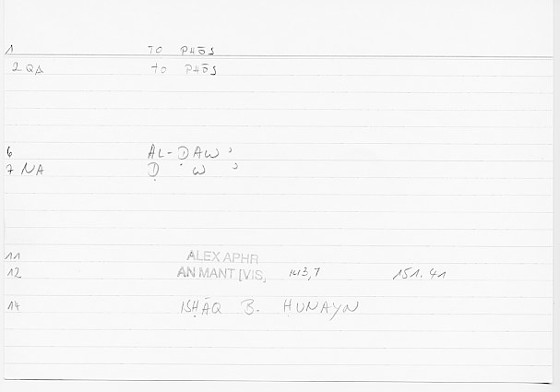 1 TO PHŌS
2 QA TO PHŌS
6 AL-ḌAWʾ
7 NA Ḍ W ʾ
11 ALEX APHR
12 AN MANT [VIS, 143,7 151.41
14 ISḤĀQ B. HUNAYN